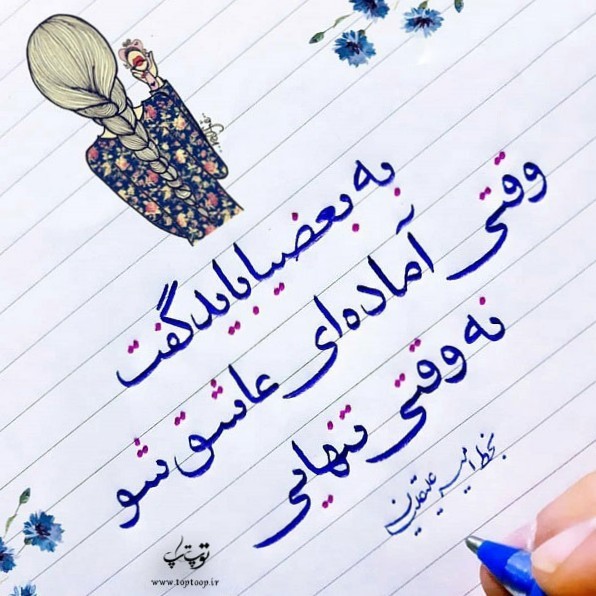 به بعضیا باید گفت
وقتی آماده‌ای عاشق شو
نه وقتی تنهایی
بخط
توپ تاپ
www.toptoop.ir